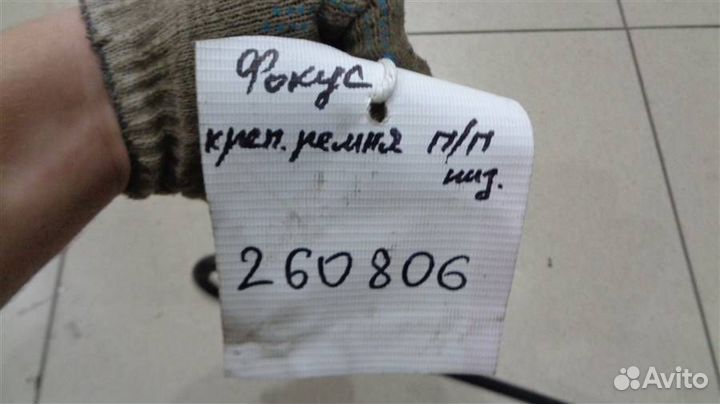 Фокус
креп. ремня П/П
низ.
260806
Avito